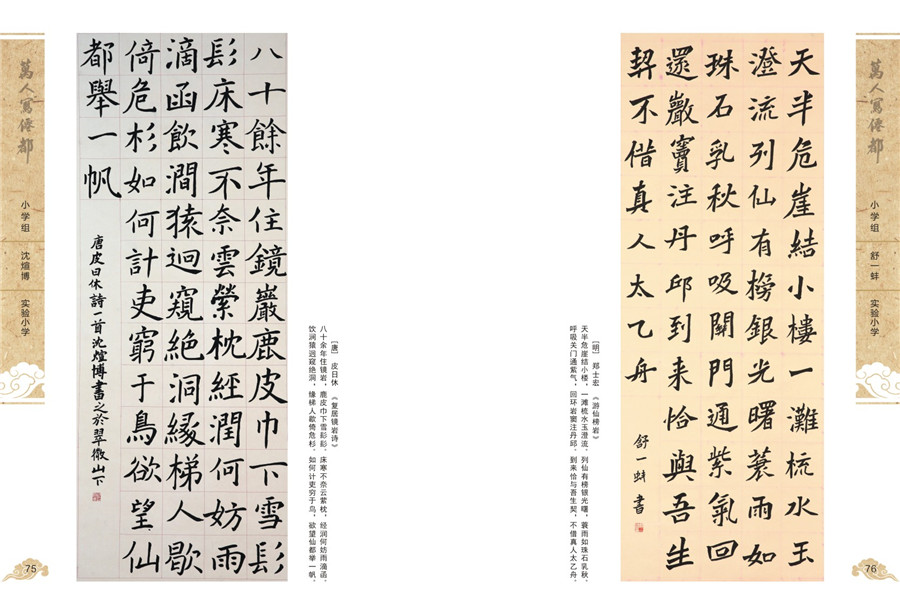 萬人寫僊都
小学组 沈煊博 实验小学
八十餘年住鏡巖鹿皮巾下雪髟
髟床寒不奈雲縈枕經潤何妨雨
滴函飲澗猿迴窺絶洞緣梯人歇
倚危杉如何計吏窮于鳥欲望仙
都舉一帆
唐皮日休詩一首沈煊博書之於翠微山下
[唐] 皮日休 《复居镜岩诗》
八十余年住镜岩，鹿皮巾下雪髟髟，床寒不奈云萦枕，经润何妨雨滴函，
饮涧猿迴窥绝洞，缘梯人歇倚危杉，如何计吏穷于鸟，欲望仙都举一帆。
75
[明] 郑士宏 《游仙榜岩》
天半危崖结小楼，一滩梳水玉澄流，列仙有榜银光曙，蓑雨如珠石乳秋，
呼吸关门通紫气，回环岩窦注丹邱，到来恰与吾生契，不借真人太乙舟。
天半危崖結小樓一灘梳水玉
澄流列仙有榜銀光曙蓑雨如
珠石乳秋呼吸關門通紫氣回
還巖竇注丹邱到来恰與吾生
契不借真人太乙舟
舒一蚌書
萬人寫僊都
小学组 舒一蚌 实验小学
76